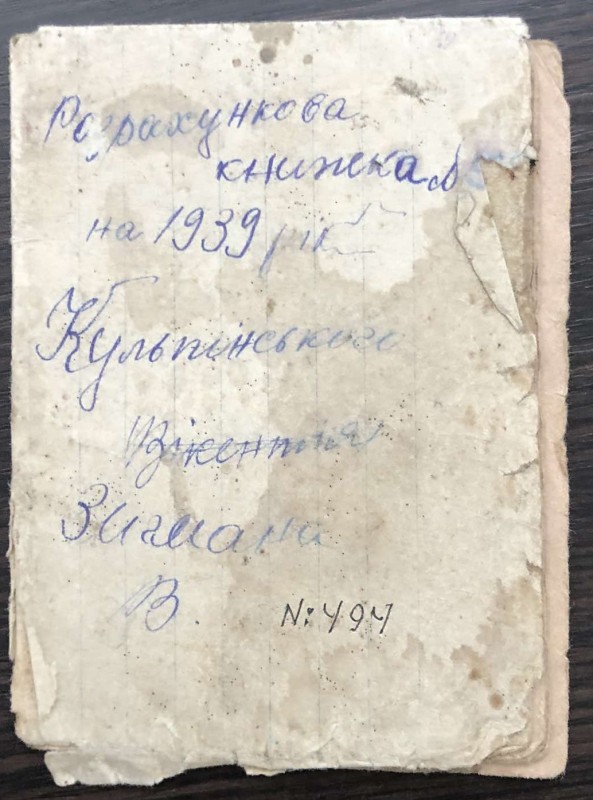 Розрахункова
книжка №
на 1939 рік
Культінського
Вікентія
Зигман
В
№: 494